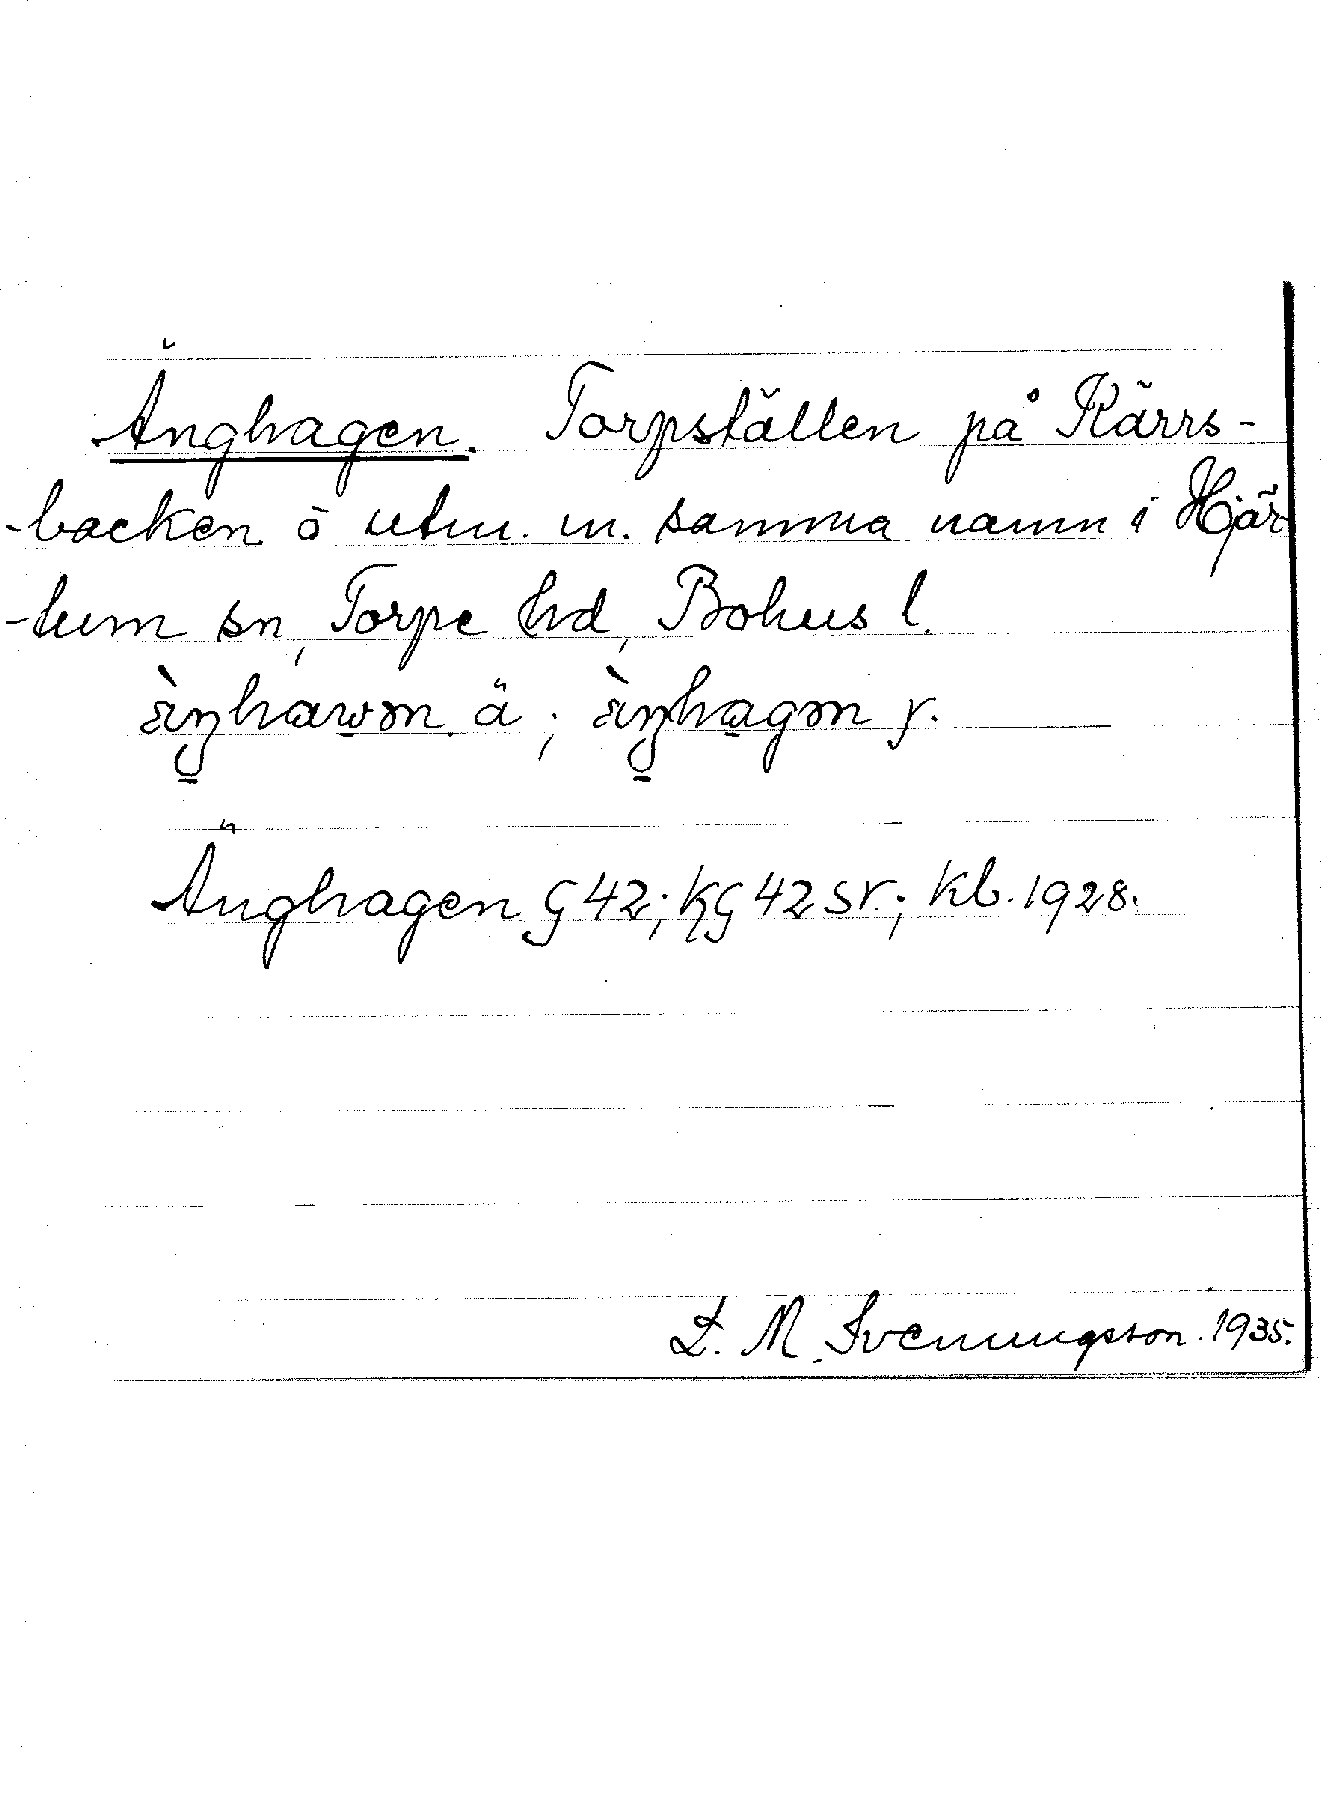 Änghagen. Torpställen på Kärrs-
-backen ö utm. m. samma namn i Hjär-
-tum sn, Torpe hd, Bohus l.
ä; y.
Änghagen G 42; KG 42 sr.; Kb. 1928.
L. M. Svenungsson. 1935.